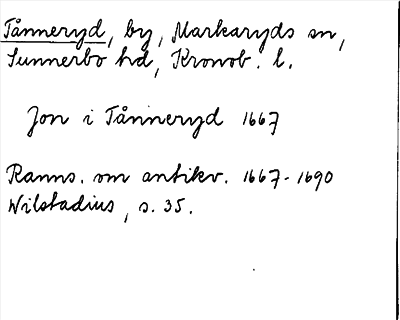 Tånneryd, by, Markaryds sn,
Sunnerbo hd, Kronob. l.
Jon i Tånneryd 1667
Ranns. om antikv. 1667-1690
Wilstadius, s. 35.